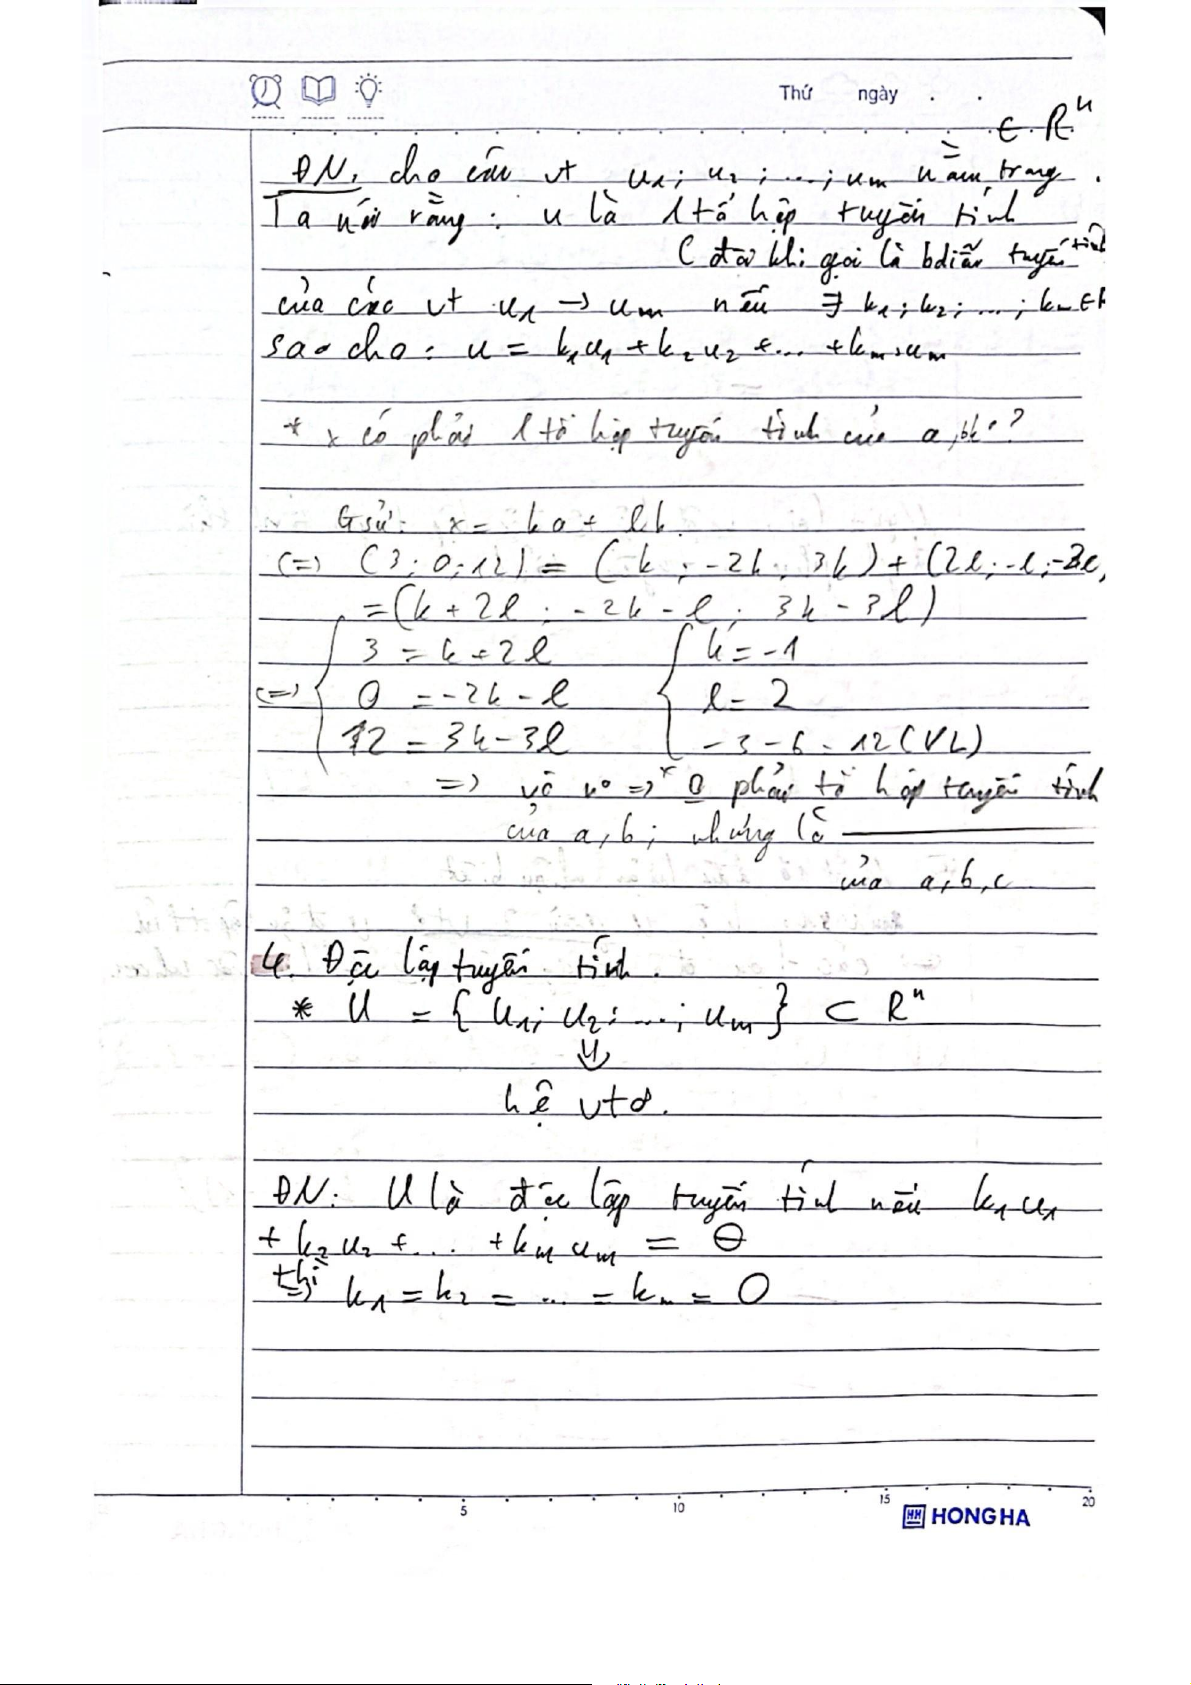 Thứ ngày . .
∈ Rⁿ
ĐN: cho các vt u₁; u₂; ...; uₘ nằm trong
Ta nói rằng: u là 1 tổ hợp tuyến tính
( đôi khi gọi là bdiễn tuyến tính
của các vt u₁ → uₘ nếu ∃ k₁; k₂; ...; kₘ ∈ R
sao cho: u = k₁u₁ + k₂u₂ + ... + kₘ.uₘ
* x có phải 1 tổ hợp tuyến tính của a, b ?
Gsử: x = ka + lb
(=) (3; 0; 12) = (k; -2k; 3k) + (2l; -l; -3l)
= (k + 2l; -2k - l; 3k - 3l)
(=) { 3 = k + 2l { k = -1
0 = -2k - l l = 2
12 = 3k - 3l -3 - 6 = 12 (VL)
=) vô n° =) x 0 phải tổ hợp tuyến tính
của a, b; nhưng là ———
của a, b, c
4. Độc lập tuyến tính.
* U = {u₁; u₂; ...; uₘ} ⊂ Rⁿ
⇓
hệ vtơ.
ĐN: U là độc lập tuyến tính nếu k₁u₁
+ k₂u₂ + ... + kₘuₘ = θ
thì =) k₁ = k₂ = ... = kₘ = 0
5 10 15 20
HH HONG HA